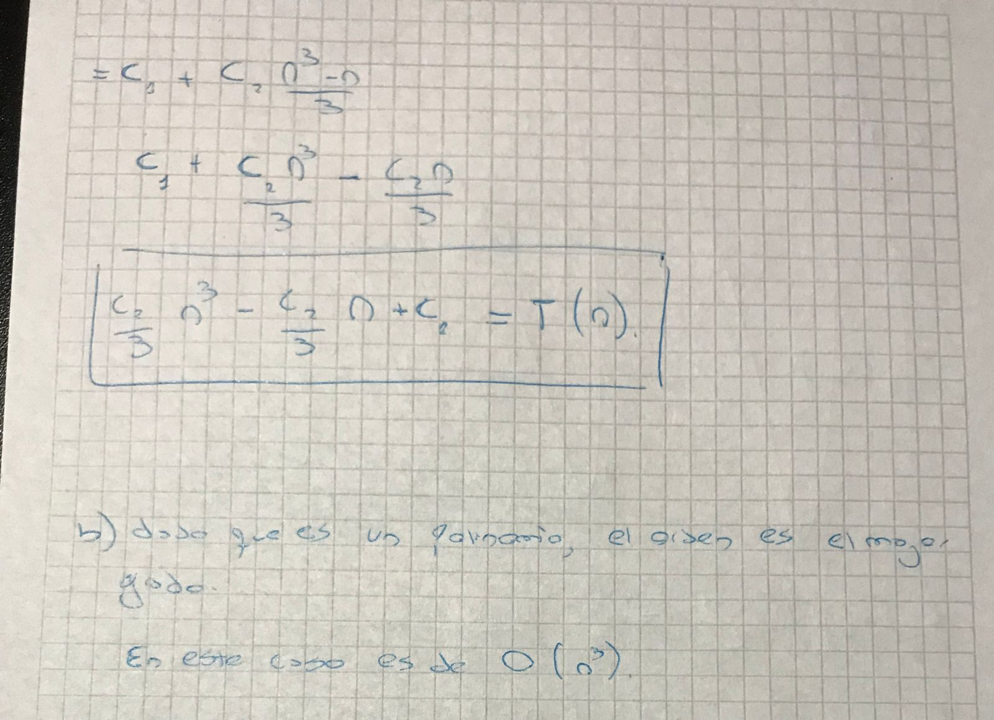 = C₁ + C₂ n³-n/3
C₁ + C₂n³/3 - C₂n/3
C₂/3 n³ - C₂/3 n + C₁ = T(n).
b) dado que es un polinomio, el orden es el mayor
grado.
En este caso es de O(n³).